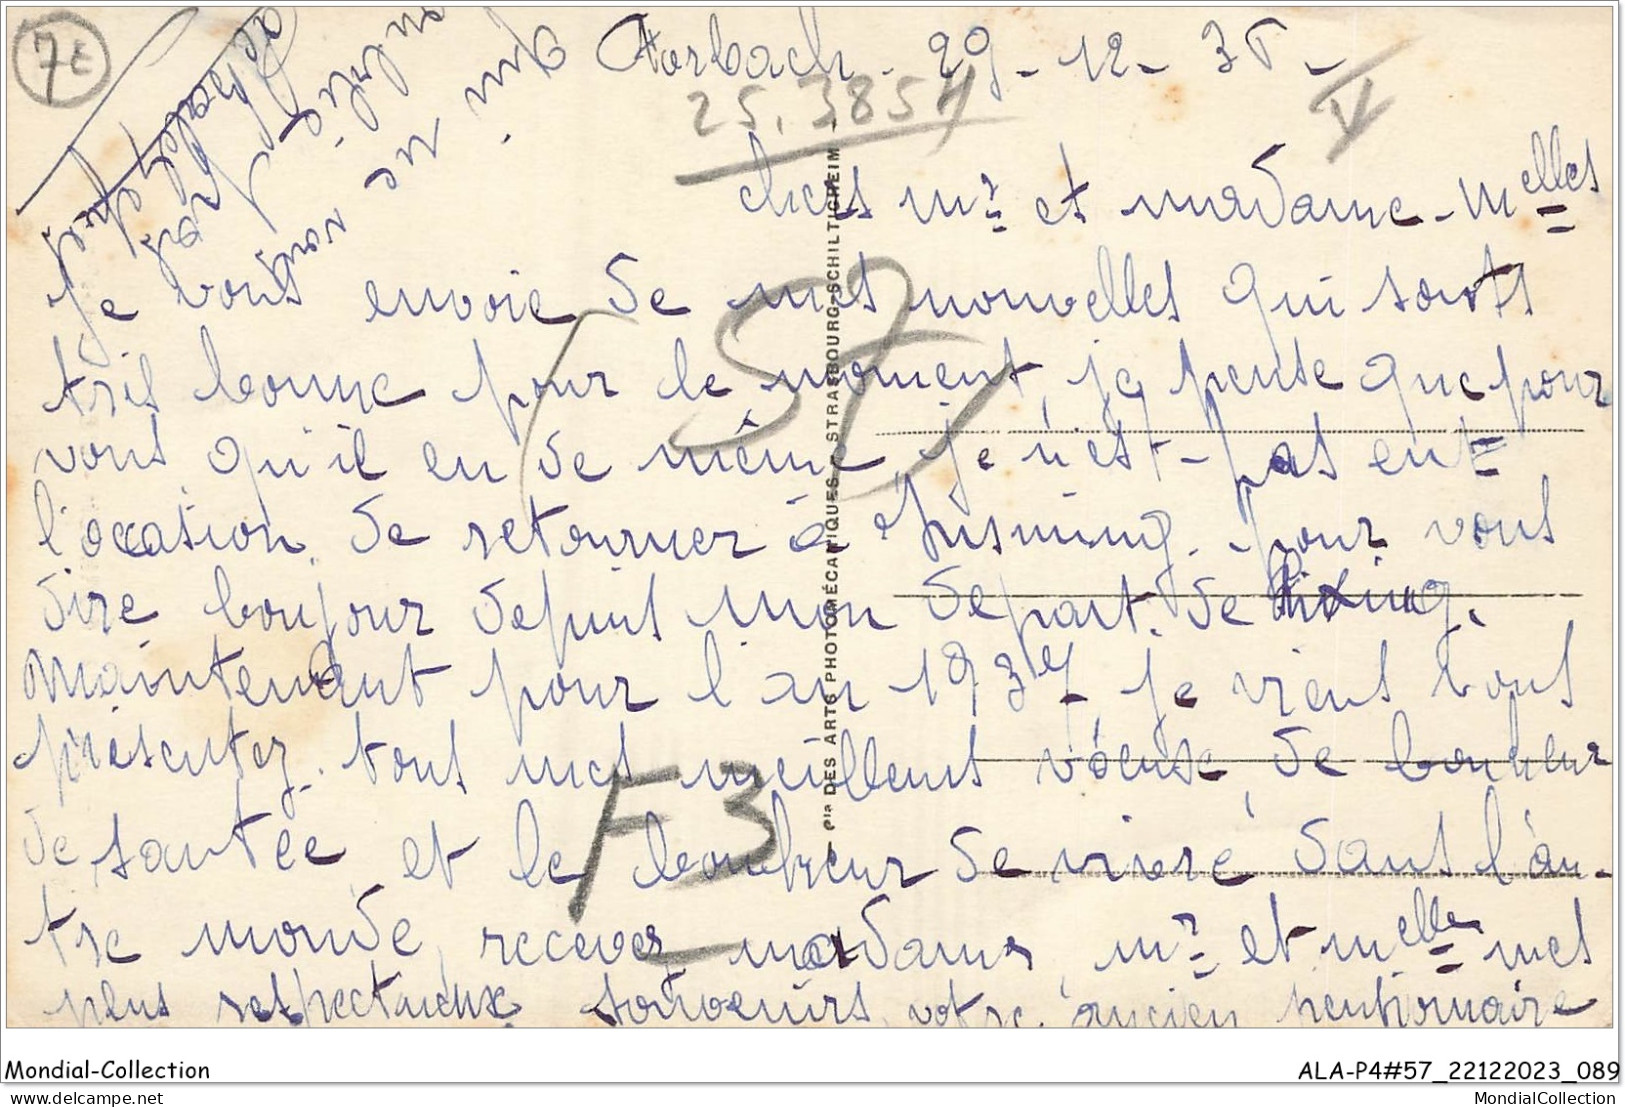 7E
Forbach - 29 - 12 - 35 -
25,3854
IV
chers mr et madame - melles
Je vous envoie de mes nouvelles qui sonts
trés bonne pour le moment, je pense que pour
vous qu'il en de même, je n'est - pas ent
l'occation de retourner a Hisming. pour vous
dire boujour depuis mon depart de Rixing.
Maintenant pour l'an 1937, je viens vous
présenter tous mes meilleurs voeuse, de bonheur
de santée et le bonheur de vivre dans l'au-
tre monde, recever madame, mr et melle mes
plus respectueux souvenirs, votre ancien pentionnaire
qui ne vous
oublié
57
F3
Cie DES ARTS PHOTOMÉCANIQUES - STRASBOURG-SCHILTIGHEIM -
Mondial-Collection
ALA-P4#57_22122023_089
delcampe.net
MondialCollection